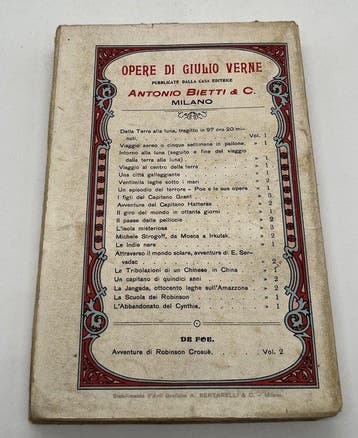 OPERE DI GIULIO VERNE
PUBBLICATE DALLA CASA EDITRICE
ANTONIO BIETTI & C.
MILANO
Dalla Terra alla luna, tragitto in 97 ore 20 mi-
nuti, Vol. 1
Viaggio aereo o cinque settimane in pallone, » 1
Intorno alla luna (seguito e fine del viaggio
dalla terra alla luna) » 1
Viaggio al centro della terra » 1
Una città galleggiante » 1
Ventimila leghe sotto i mari » 2
Un episodio del terrore - Poe e le sue opere » 1
I figli del Capitano Grant » 3
Avventure del Capitano Hatteras » 2
Il giro del mondo in ottanta giorni » 1
Il paese delle pelliccie » 2
L'isola misteriosa » 3
Michele Strogoff, da Mosca a Irkutsk » 2
Le Indie nere » 1
Attraverso il mondo solare, avventure di E. Ser-
vadac » 2
Le Tribolazioni di un Chinese in China » 1
Un capitano di quindici anni » 2
La Jangada, ottocento leghe sull'Amazzone » 2
La Scuola dei Robinson » 1
L'Abbandonato del Cynthia » 1
DE FOE.
Avventura di Robinson Crosuè, Vol. 2
Stabilimento d'Arti Grafiche A. BERTARELLI & C. - Milano.